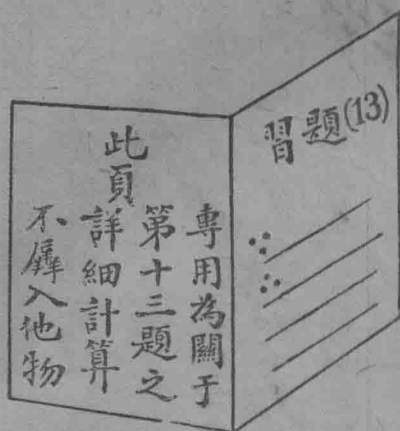 習題(13)
∵
∴
此頁
專用為關于
第十三題之
詳細計算
不羼入他物